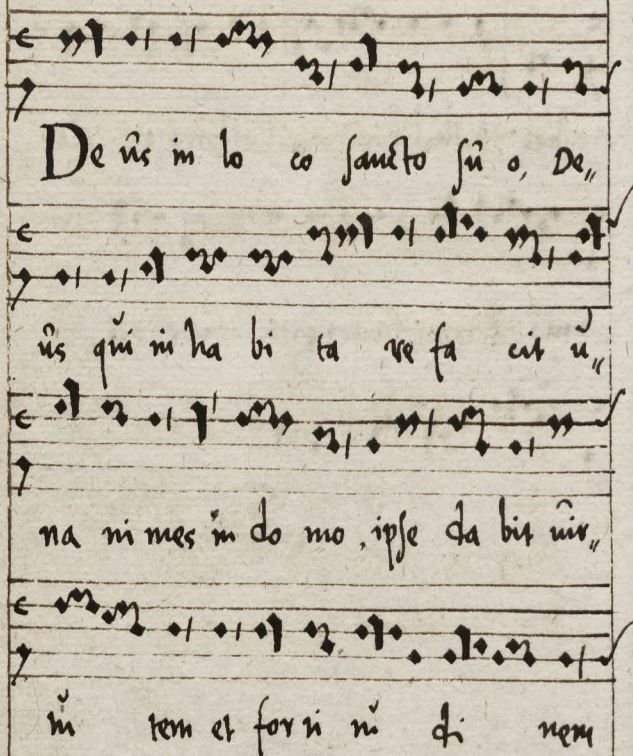 De ús in lo co sancto sú o, De„
ús qui in ha bi ta re fa cit ú„
na ni mes in do mo, ipse da bit uir„
tu tem et for ti tu di nem